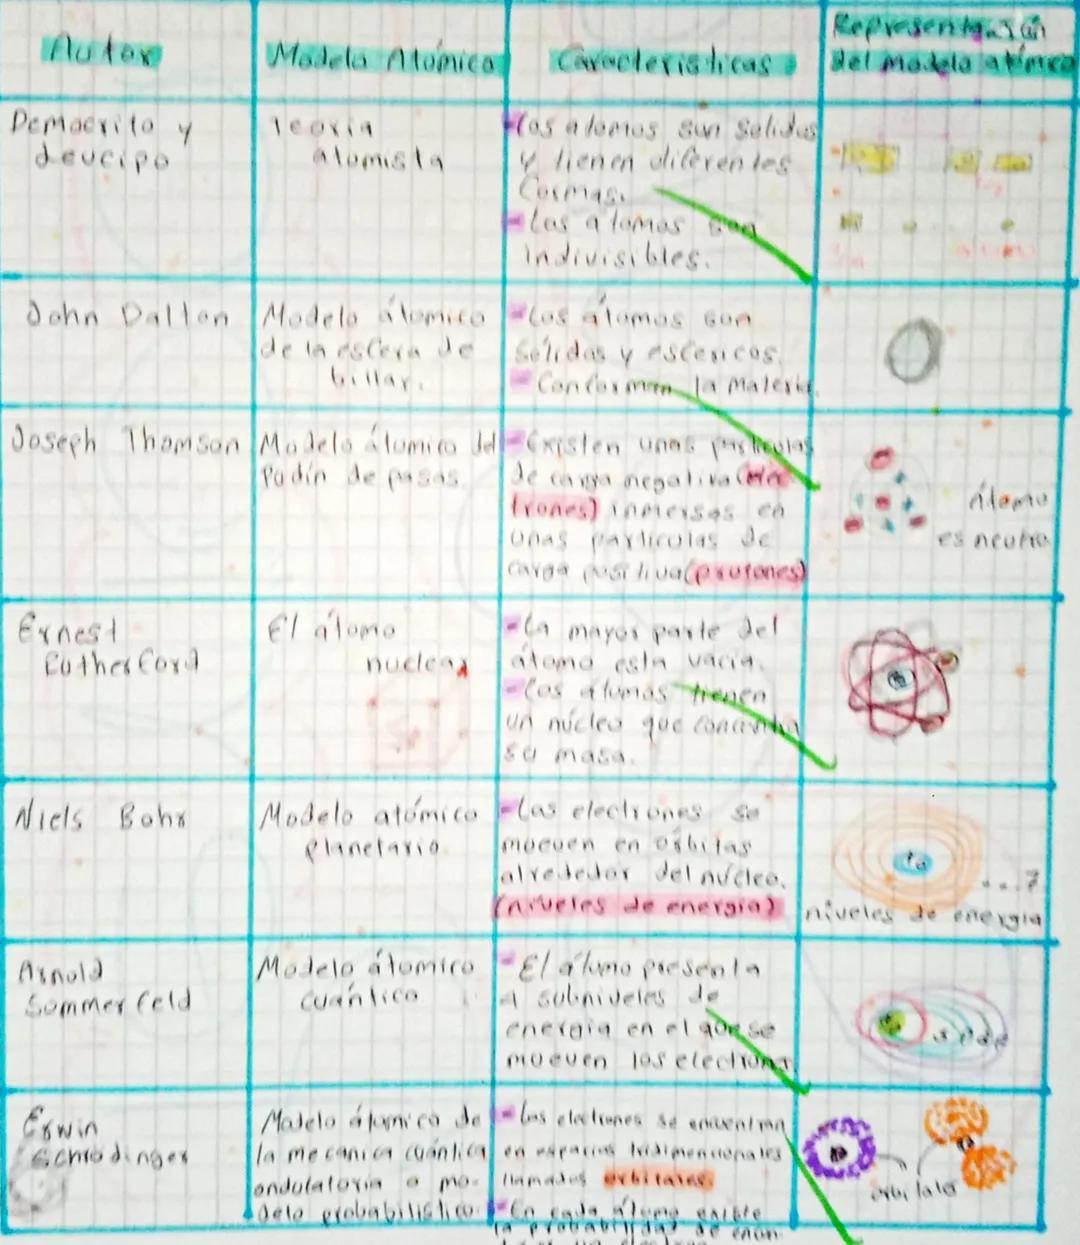 Autor
Modelo Atómico
Caracteristicas
Representación
del modelo atómico
Democrito y
Leucipo
Teoria
atomista
-Los atomos son solidos
y tienen diferentes
formas.
-Los atomos son
indivisibles.
átomo
John Dalton
Modelo átomico
de la esfera de
billar.
-Los átomos son
sólidos y esfericos.
-Conforman la materia.
Joseph Thomson
Modelo átomico del
Pudín de pasas.
-Existen unas particulas
de carga negativa (elec
trones) inmersos en
unas particulas de
carga positiva (protones)
átomo
es neutro
Ernest
Rutherford
El átomo
nuclear
-La mayor parte del
átomo esta vacia.
-Los átomos tienen
un núcleo que concentra
su masa.
Niels Bohr
Modelo atómico
Planetario.
-Los electrones se
mueven en orbitas
alrededor del núcleo.
(niveles de energia)
...7
niveles de energia
Arnold
Sommerfeld
Modelo átomico
cuántico
-El átomo presenta
4 subniveles de
energia en el que se
mueven los electrones
s p d f
Erwin
Schrodinger
Modelo átomico de
la mecanica cuántica
ondulatoria o mo-
delo probabilistico.
-Los electrones se encuentran
en espacios tridimensionales
llamados orbitales.
-En cada átomo existe
la probabilidad de encon-
orbitales